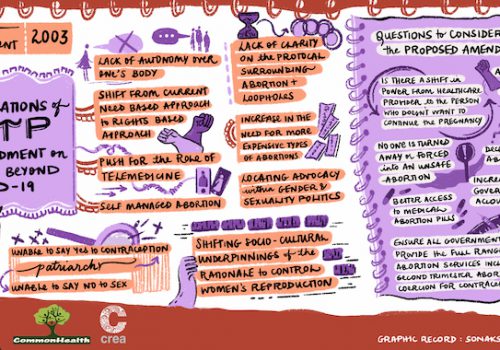 2003
LACK OF AUTONOMY OVER
ONE'S BODY
SHIFT FROM CURRENT
NEED BASED APPROACH
to RIGHTS BASED
APPROACH
PUSH FOR THE ROLE OF
TELEMEDICINE
SELF MANAGED ABORTION
LACK OF CLARITY
ON THE PROTOCAL
SURROUNDING
ABORTION +
LOOPHOLES
INCREASE IN THE
NEED FOR MORE
EXPENSIVE TYPES
OF ABORTIONS
LOCATING ADVOCACY
within GENDER &
SEXUALITY POLITICS
UNABLE TO SAY YES TO CONTRACEPTION
patriarchy
UNABLE TO SAY NO TO SEX
SHIFTING SOCIO-CULTURAL
UNDERPINNINGS OF THE
RATIONALE TO CONTROL
WOMEN'S REPRODUCTION
QUESTIONS to CONSIDER
the PROPOSED
IS THERE A SHIFT in
POWER FROM HEALTHCARE
PROVIDER to THE PERSON
WHO DOESN'T WANT TO
CONTINUE THE PREGNANCY
NO ONE IS TURNED
AWAY or FORCED
INTO AN UNSAFE
ABORTION
BETTER ACCESS
to MEDICAL
ABORTION PILLS
ENSURE ALL
PROVIDE THE FULL
ABORTION SERVICES
SECOND TRIMESTER
COERCION FOR
CommonHealth
crea
GRAPHIC RECORD :